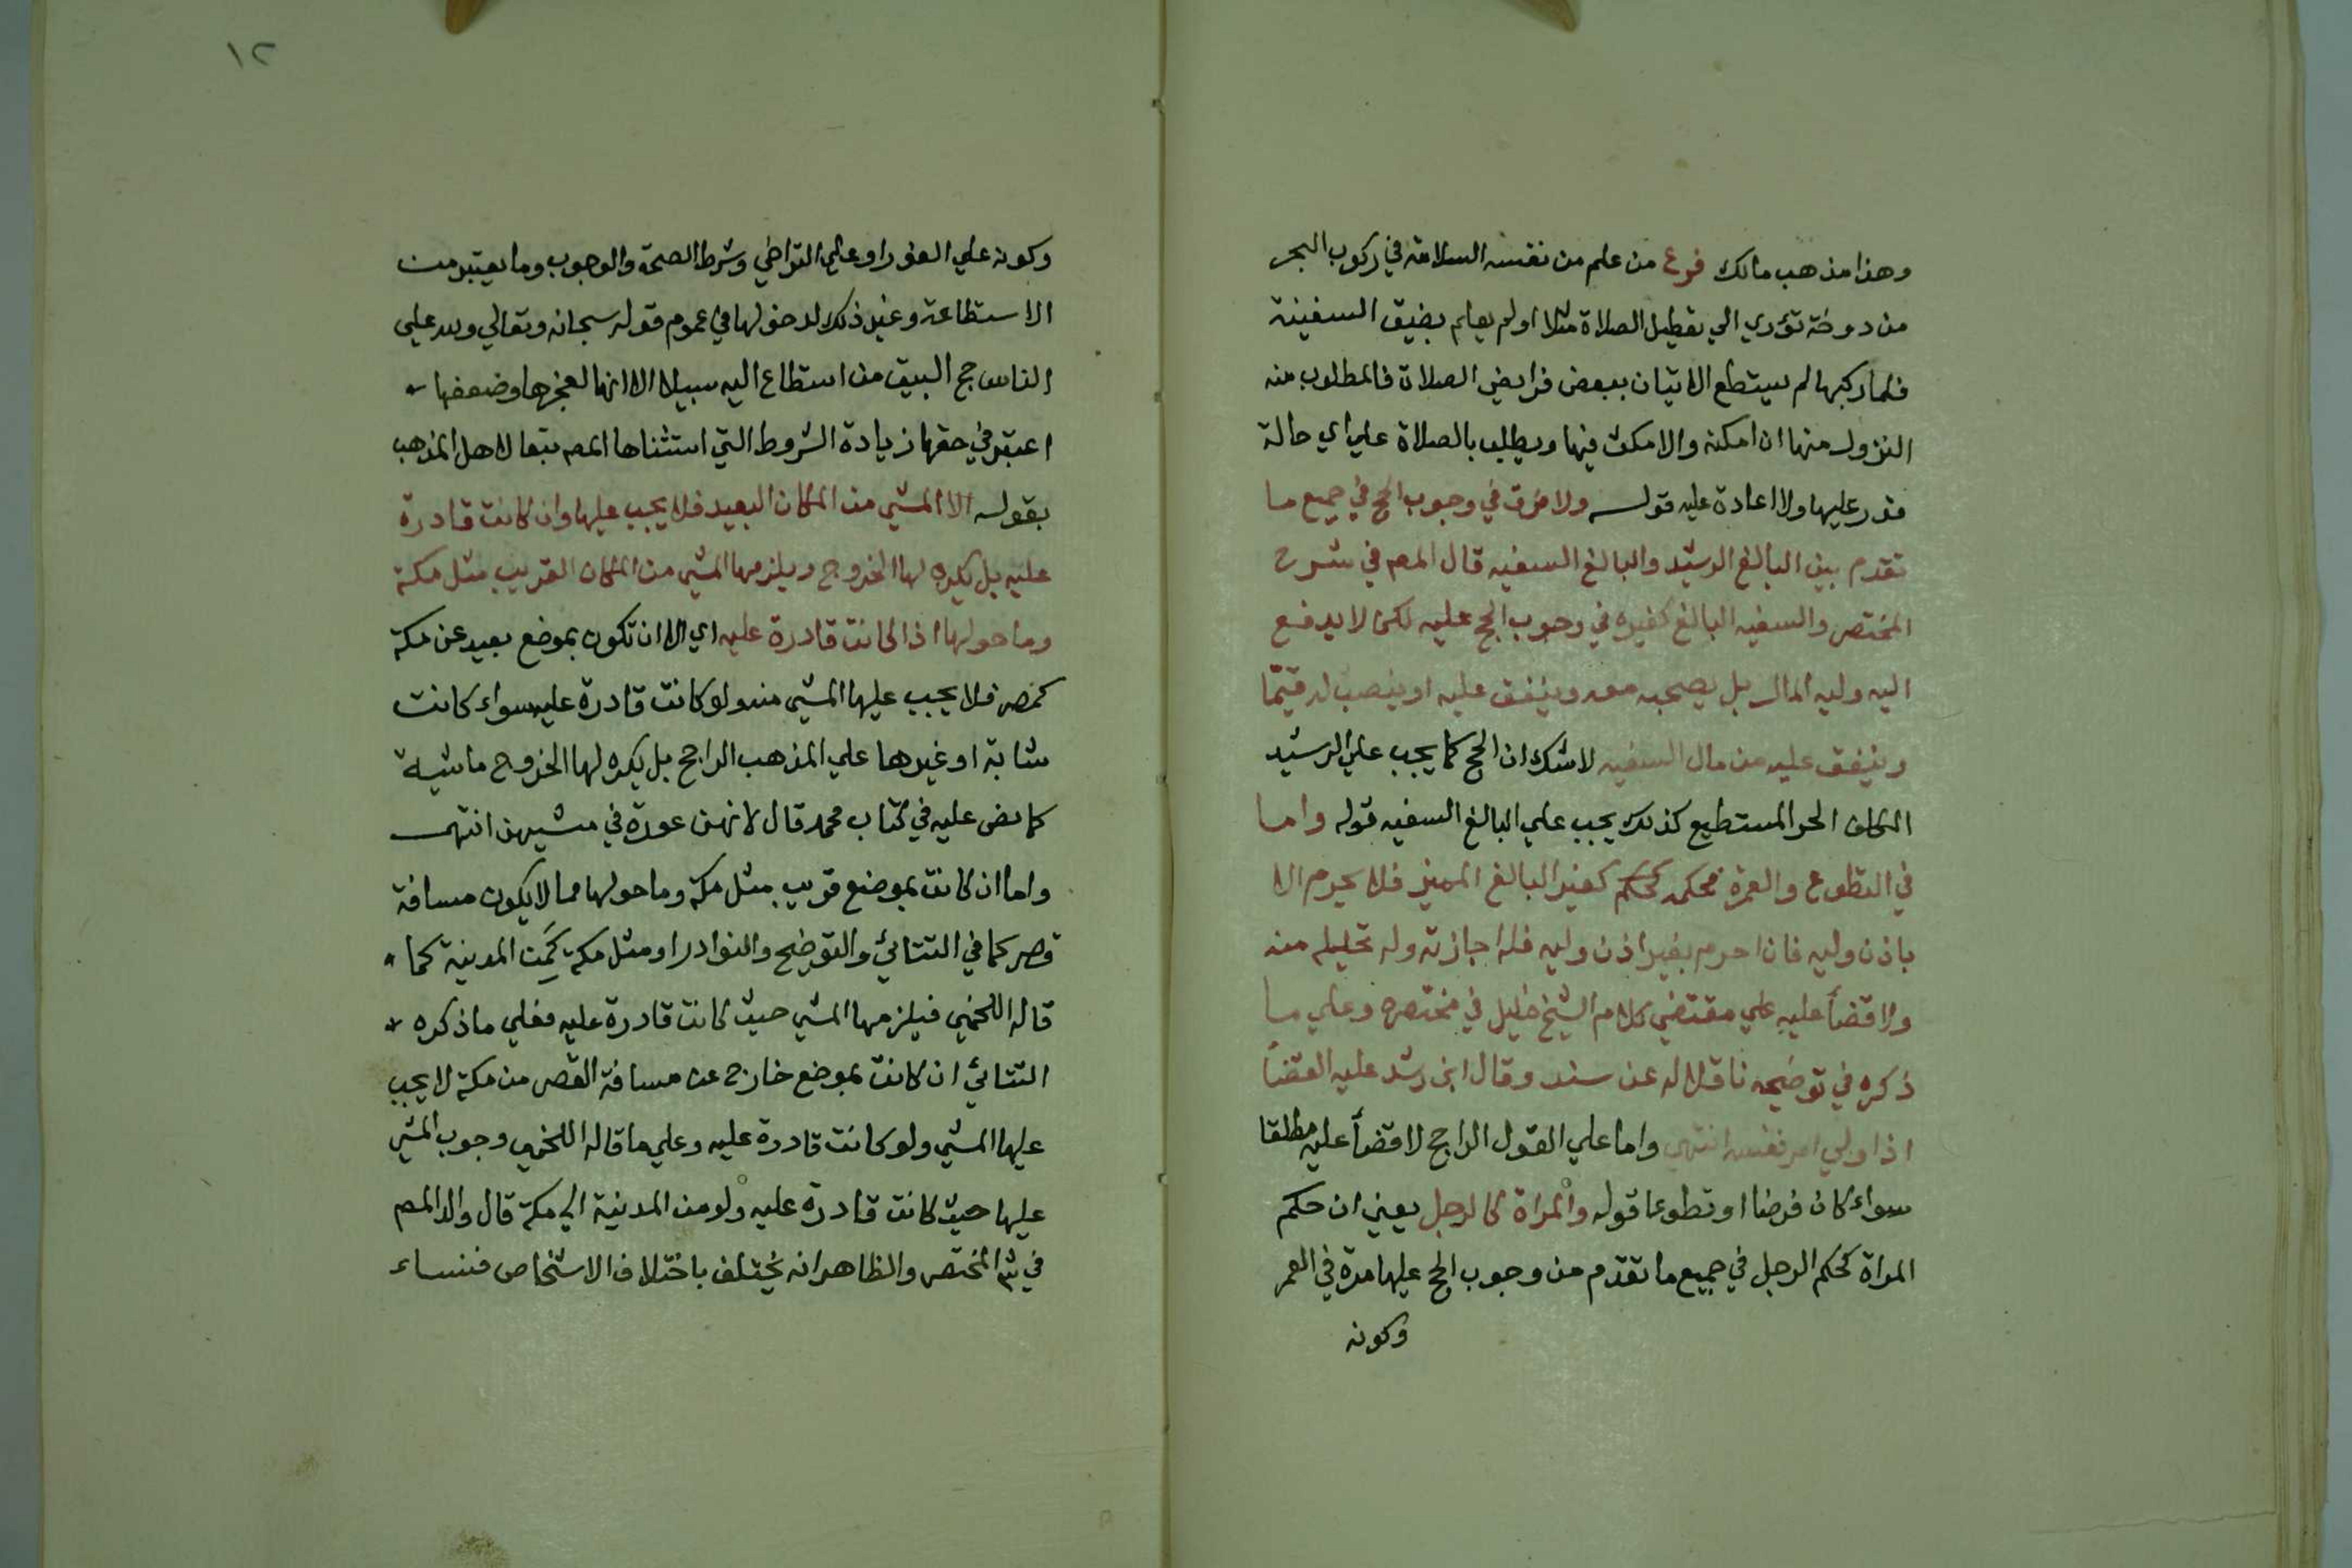 وهذا مذهب مالك فرع من علم من نفسه السلامة في ركوب البحر
من دوخة تؤدي الي تعطيل الصلاة مثلا او لم يعلم بضيق السفينة
فلما ركبها لم يستطع الاتيان ببعض فرايض الصلاة فالمطلوب منه
النزول منها ان امكنه والا مكث فيها ويطلب بالصلاة علي اي حالة
قدر عليها ولا اعادة عليه قوله ولا فرق في وجوب الحج في جميع ما
تقدم بين البالغ الرشيد والبالغ السفيه قال المص في شرح
المختصر والسفيه البالغ كغيره في وجوب الحج عليه لكن لا يدفع
اليه وليه المال بل يصحبه معه وينفق عليه او ينصب له قيمّا
وينفق عليه من مال السفيه لا شك ان الحج كما يجب علي الرشيد
المكلف الحر المستطيع كذلك يجب علي البالغ السفيه قوله واما
في التطوع والعمرة فحكمه كحكم كغير البالغ المميز فلا يحرم الا
باذن وليه فان احرم بغير اذن وليه فله اجازته وله تحليله منه
ولا قضأ عليه علي مقتضي كلام الشيخ خليل في مختصره وعلي ما
ذكره في توضيحه ناقلا له عن سند وقال ابن رشد عليه القضأ
اذا ولي امر نفسه انتهي واما علي القول الراجح لا قضأ عليه مطلقا
سواء كان فرضا او تطوعا قوله والمراة كالرجل يعني ان حكم
المراة كحكم الرجل في جميع ما تقدم من وجوب الحج عليها مرة في العمر
وكونه
١٢
وكونه علي الفور او علي التراخي وشرط الصحة والوجوب وما يعتبر من
الاستطاعة وغير ذلك لدخولها في عموم قوله سبحانه وتعالي ولله علي
الناس حج البيت من استطاع اليه سبيلا الا انها لعجزها وضعفها
اعتبر في حقها زيادة الشروط التي استثناها المص تبعا لاهل المذهب
بقوله الا المشي من المكان البعيد فلا يجب عليها وان كانت قادرة
عليه بل يكره لها الخروج ويلزمها المشي من المكان القريب مثل مكة
وما حولها اذا كانت قادرة عليه اي الا ان تكون بموضع بعيد عن مكة
كمصر فلا يجب عليها المشي منه ولو كانت قادرة عليه سواء كانت
شابة او غيرها علي المذهب الراجح بل يكره لها الخروج ماشية
كما نص عليه في كتاب محمد قال لانهن عورة في مشيهن انتهي
واما ان كانت بموضع قريب مثل مكة وما حولها مما لا يكون مسافة
قصر كما في التتائي والتوضيح والنوادر او مثل مكة كَمِن المدينة كما
قاله اللخمي فيلزمها المشي حيث كانت قادرة عليه فعلي ما ذكره
التتائي ان كانت بموضع خارج عن مسافة القصر من مكة لا يجب
عليها المشي ولو كانت قادرة عليه وعلي ما قاله اللخمي وجوب المشي
عليها حيث كانت قادرة عليه ولو من المدينة الي مكة قال والد المص
في ش المختصر والظاهر انه يختلف باختلاف الاشخاص فنساء